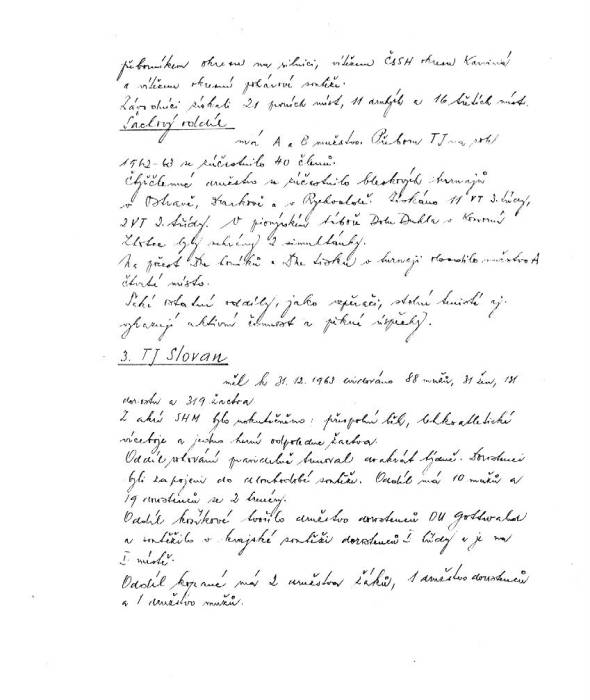 přeborníkem okresu na silnici, vítězem ČSSH okresu Karviná
a vítězem okresní pohárové soutěže.
Závodníci získali 21 prvních míst, 11 druhých a 16 třetích míst.
Šachový oddíl
má A a B mužstvo. Přeboru TJ na rok
1962-63 se zúčastnilo 40 členů.
Čtyřčlenné družstvo se zúčastnilo bleskových turnajů
v Ostravě, a v Rychvaldě. Získáno 11 VT 3. třídy,
2 VT 2. třídy. V pionýrském táboře Dolu Dukla v
byly sehrány 2 simultánky.
Na počest Dne horníků a Dne tisku v turnaji obsadilo mužstvo A
čtvrté místo.
Také ostatní oddíly, jako vzpěrači, stolní tenisté aj.
vykazují aktivní činnost a pěkné úspěchy.
3. TJ Slovan
měl k 31. 12. 1963 evidováno 88 mužů, 31 žen, 131
dorostu a 319 žactva
Z akcí SHM bylo uskutečněno: přespolní běh, lehkoatletické
víceboje a jedno herní odpoledne žactva
Oddíl plavání pravidelně trénoval dvakrát týdně. Dorostenci
byli zapojeni do dlouhodobé soutěže. Oddíl má 10 mužů a
19 dorostenců se 2 trenéry.
Oddíl košíkové tvořilo družstvo dorostenců OU Gottwald
a soutěžilo v krajské soutěži dorostenců I třídy a je na
I místě.
Oddíl kopané má 2 družstva žáků, 1 družstvo dorostenců
a 1 družstvo mužů.